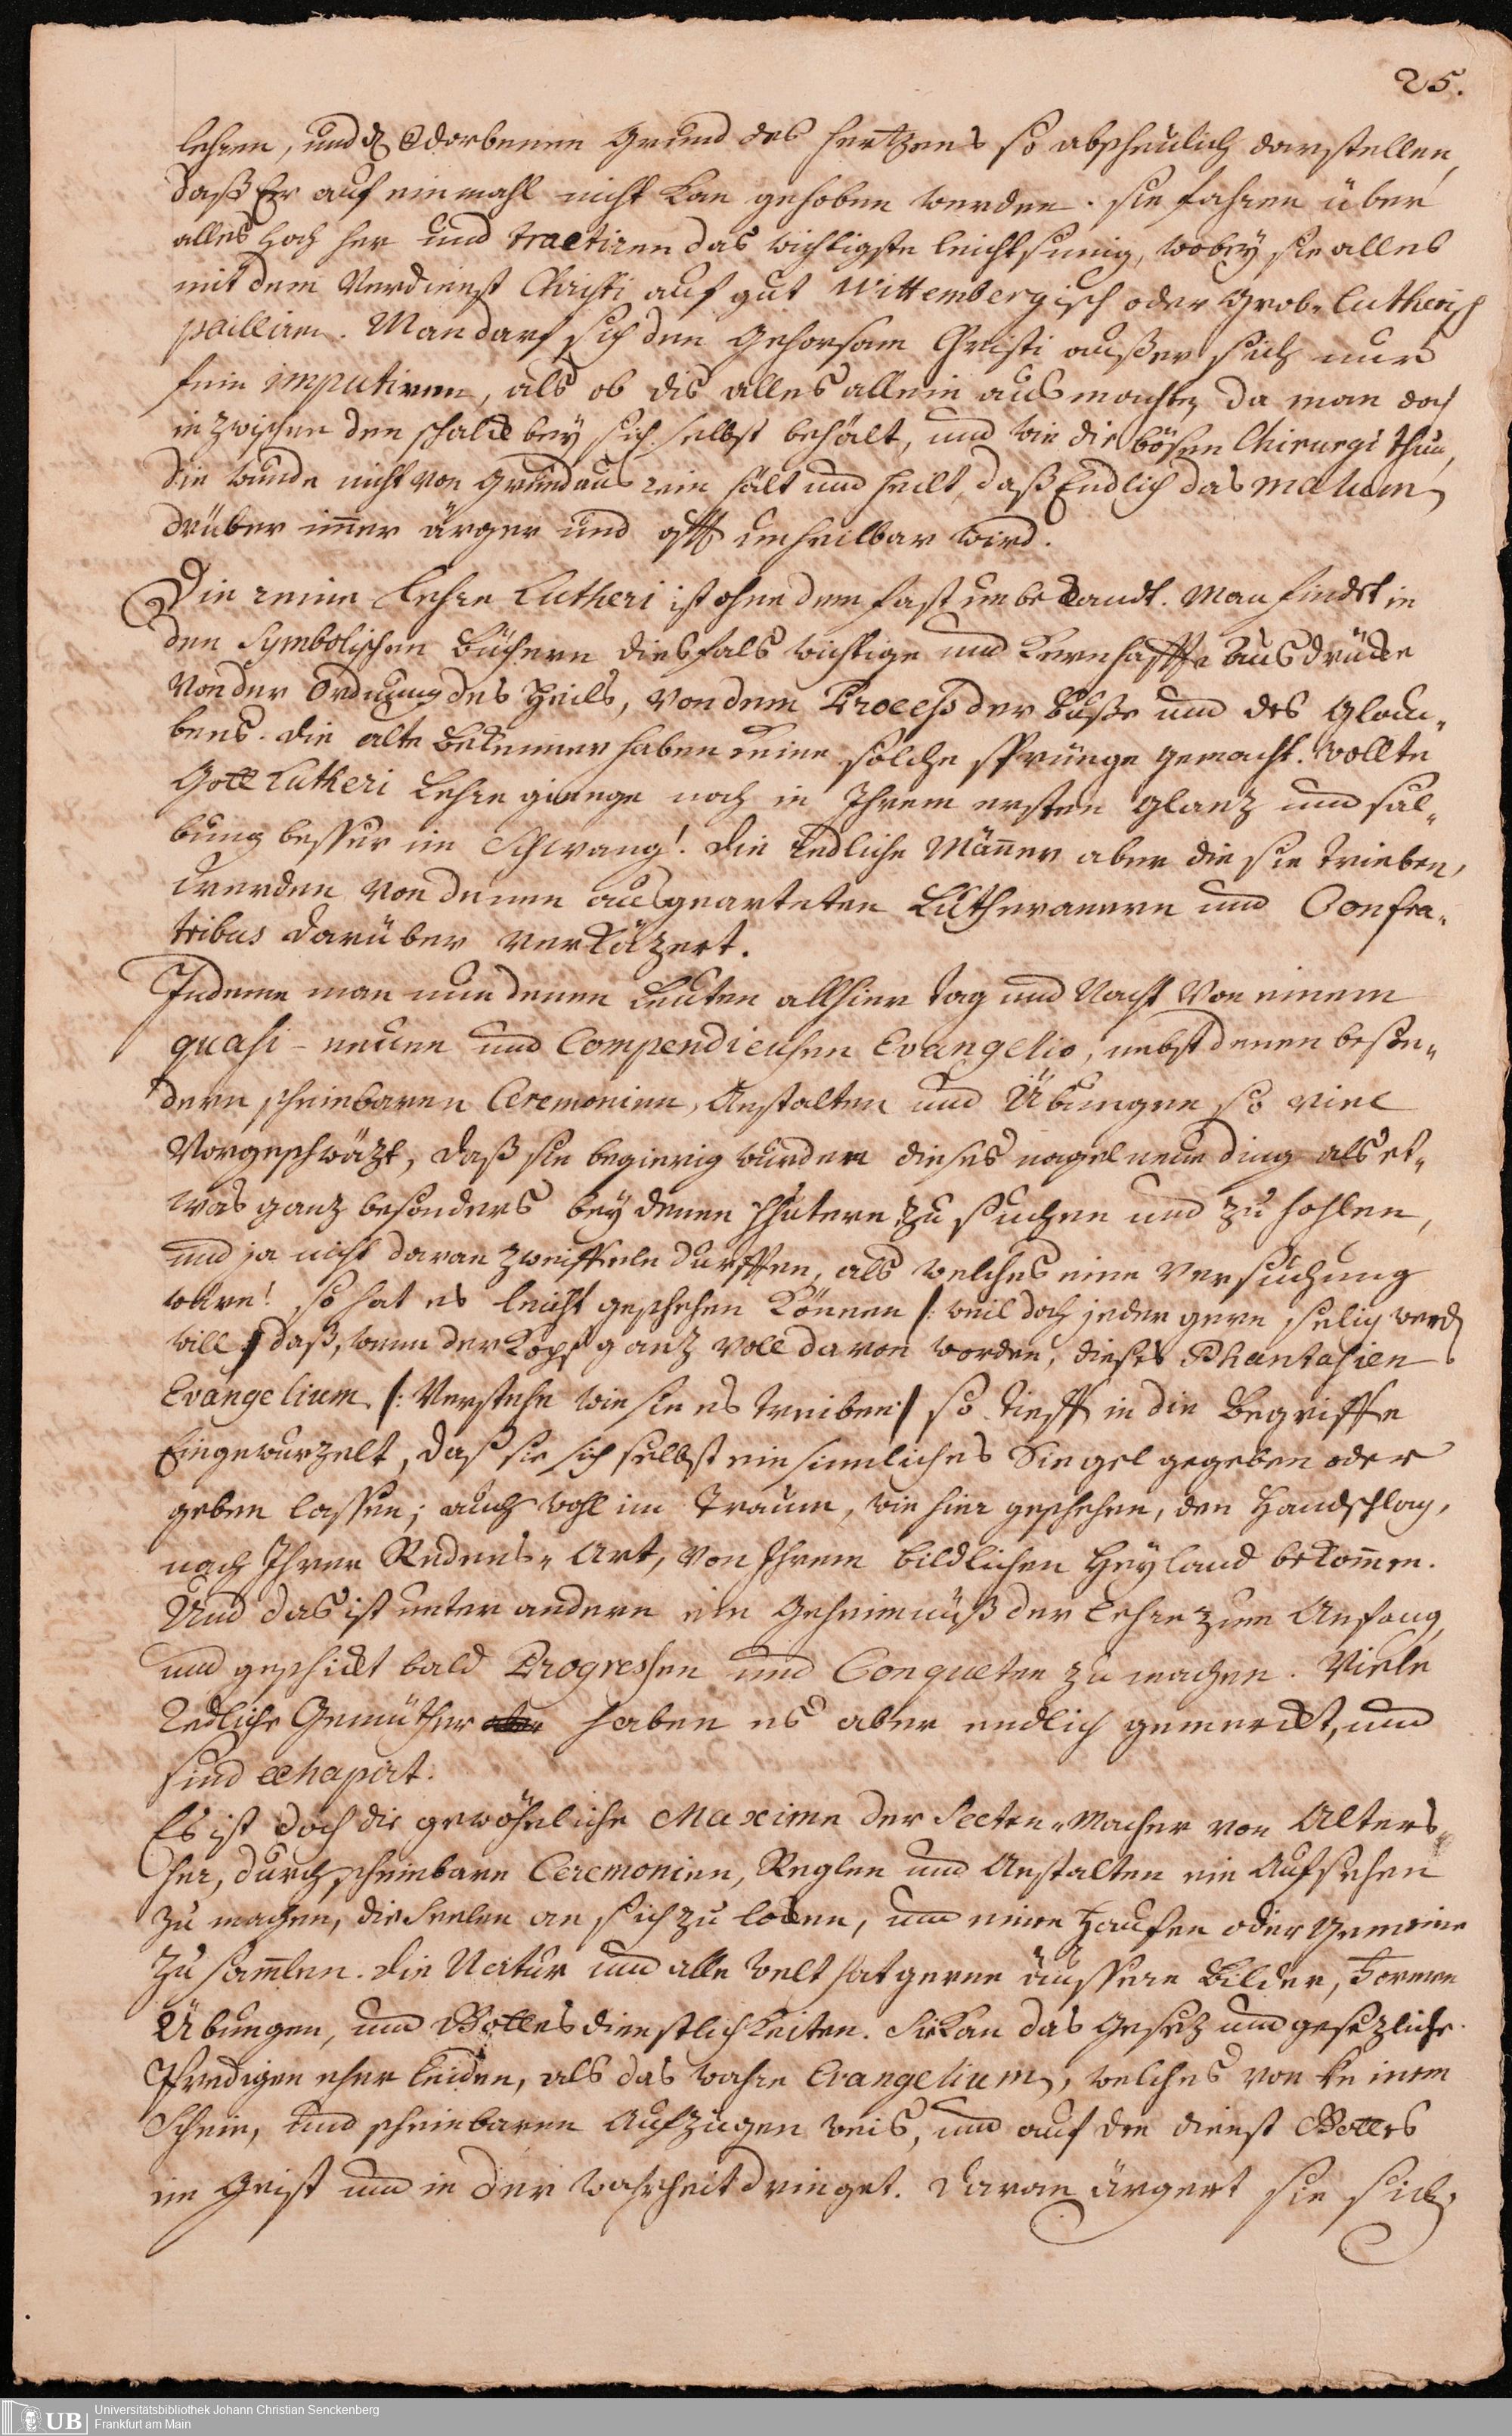 25.
lehren, und den verdorbenen Grund des Hertzens so abscheulich darstellen,
daß Er auf einmahl nicht kan gehoben werden. Sie fahren über
alles hoch her und tractiren das wichtigste leichtsinnig, wobey sie alles
mit dem Verdienst Christi auf gut Wittembergisch oder Grob-Lutherisch
palliiren. Man darf sich den Gehorsam Christi außer sich nur
fein imputiren, als ob dis alles allein ausmachte, da man doch
inzwischen den schalck bey sich selbst behält, und wie die bösen Chirurgi thun,
die wunde nicht von Grund aus rein hält und heilt, daß Endlich das malum
drüber im̄er ärger und offt unheilbar wird.
Die reine Lehre Lutheri ist ohne dem fast unbekandt. Man findet in
den Symbolischen Büchern diesfals wichtige und kernhaffte Ausdrücke
von der Ordnung des Heils, von dem Process der Buße und des Glau-
bens. Die alte Bekenner haben keine solche sprünge gemacht. Wollte
Gott Lutheri Lehre gienge noch in Ihrem ersten Glanz und sal-
bung besser im Schwang! Die Redliche Män̄er aber die sie trieben,
werden von denen ausgearteten Lutheranern und Confra-
tribus darüber verkäzert.
Indeme man nun denen Leuten allhier tag und Nacht von einem
quasi-neuen und Compendieusen Evangelio, nebst denen beson-
dern scheinbaren Ceremonien, Anstalten und Übungen so viel
Vorgeschwäzt, daß sie begierig wurden dieses nagelneue ding als et-
was ganz besonders bey denen HHutern zu suchen und zu hohlen,
und ja nicht daran zweiffeln durfften, als welches eine Versuchung
wäre! so hat es leicht geschehen können /: weil doch jeder gern selig werden
will :/ daß, wenn der Kopf ganz voll davon worden, dieses Phantasien
Evangelium /: Verstehe wie sie es treiben :/ so tieff in die Begriffe
Eingewurzelt, daß sie sich selbst ein sinnliches Siegel gegeben oder
geben lassen; auch wohl im Traum, wie hier geschehen, den Handschlag,
nach Ihrer Redens-Art, von Ihrem bildlichen Heyland bekom̄en.
Und das ist unter andern ein Geheimnüß der Lehre zum Anfang,
und geschickt bald Progressen und Conqueten zu machen. Viele
Redliche Gemüther haben es aber endlich gemerckt, und
sind echapirt.
Es ist doch die gewöhnliche Maxime der Secten-Macher von Alters
her, durch scheinbare Ceremonien, Reglen und Anstalten ein Aufsehen
zu machen, die Seelen an sich zu locken, und einen Haufen oder Gemeine
zu sam̄len. Die Natur und alle Welt hat gerne äussere Bilder, Formen
Übungen, und Gottesdienstlichkeiten. Sie kan das Gesez und gesezliche
Predigen eher leiden, als das wahre Evangelium, welches von keinem
Schein, und scheinbaren Aufzügen weis, und auf den dienst Gottes
im Geist und in der Wahrheit dringet. Daran ärgert sie sich,
Universitätsbibliothek Johann Christian Senckenberg
Frankfurt am Main
UB